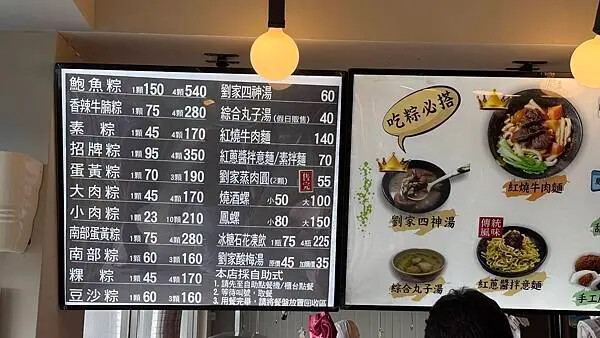 鮑魚粽 1顆150 4顆540
香辣牛腩粽 1顆75 4顆280
素粽 1顆45 4顆170
招牌粽 1顆95 4顆350
蛋黃粽 1顆70 3顆190
大肉粽 1顆45 4顆170
小肉粽 1顆23 10顆210
南部蛋黃粽 1顆75 4顆280
南部粽 1顆60 3顆160
粿粽 1顆45 4顆170
豆沙粽 1顆60 3顆160
劉家四神湯 60
綜合丸子湯(假日販售) 40
紅燒牛肉麵 140
紅蔥醬拌意麵/素拌麵 70
劉家蒸肉圓(2顆) 售完 55
燒酒螺 小50 大100
鳳螺 小80 大150
冰糖石花凍飲 1瓶75 4瓶225
劉家酸梅湯 原價45 加購價35
本店採自助式
1. 請先至自助點餐機/櫃台點餐
2. 等待叫號，取餐
3. 用餐完畢，請將餐盤放置回收區
吃粽必搭
劉家四神湯
紅燒牛肉麵
傳統風味
綜合丸子湯
紅蔥醬拌意麵
手工